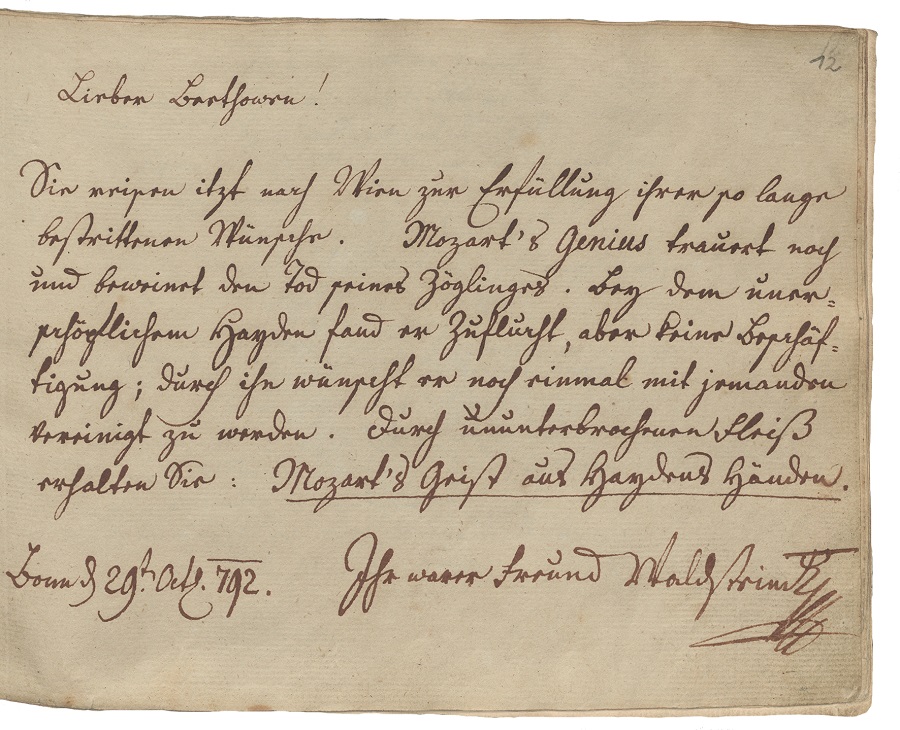 12
Lieber Beethowen!
Sie reisen itzt nach Wien zur Erfüllung ihrer so lange
bestrittenen Wünsche. Mozart's Genius trauert noch
und beweinet den Tod seines Zöglinges. Bey dem uner=
schöpflichem Hayden fand er Zuflucht, aber keine Beschäf=
tigung; durch ihn wünscht er noch einmal mit jemanden
vereinigt zu werden. Durch ununterbrochenen Fleiß
erhalten Sie: Mozart's Geist aus Haydens Händen.
Bonn d 29t. Oct. 792. Ihr warer Freund Waldstein